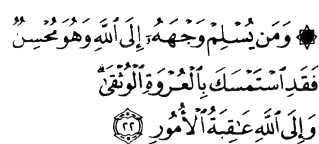 ۞ وَمَن يُسۡلِمۡ وَجۡهَهُۥٓ إِلَى ٱللَّهِ وَهُوَ مُحۡسِنٞ
فَقَدِ ٱسۡتَمۡسَكَ بِٱلۡعُرۡوَةِ ٱلۡوُثۡقَىٰۗ
وَإِلَى ٱللَّهِ عَٰقِبَةُ ٱلۡأُمُورِ ٢٢